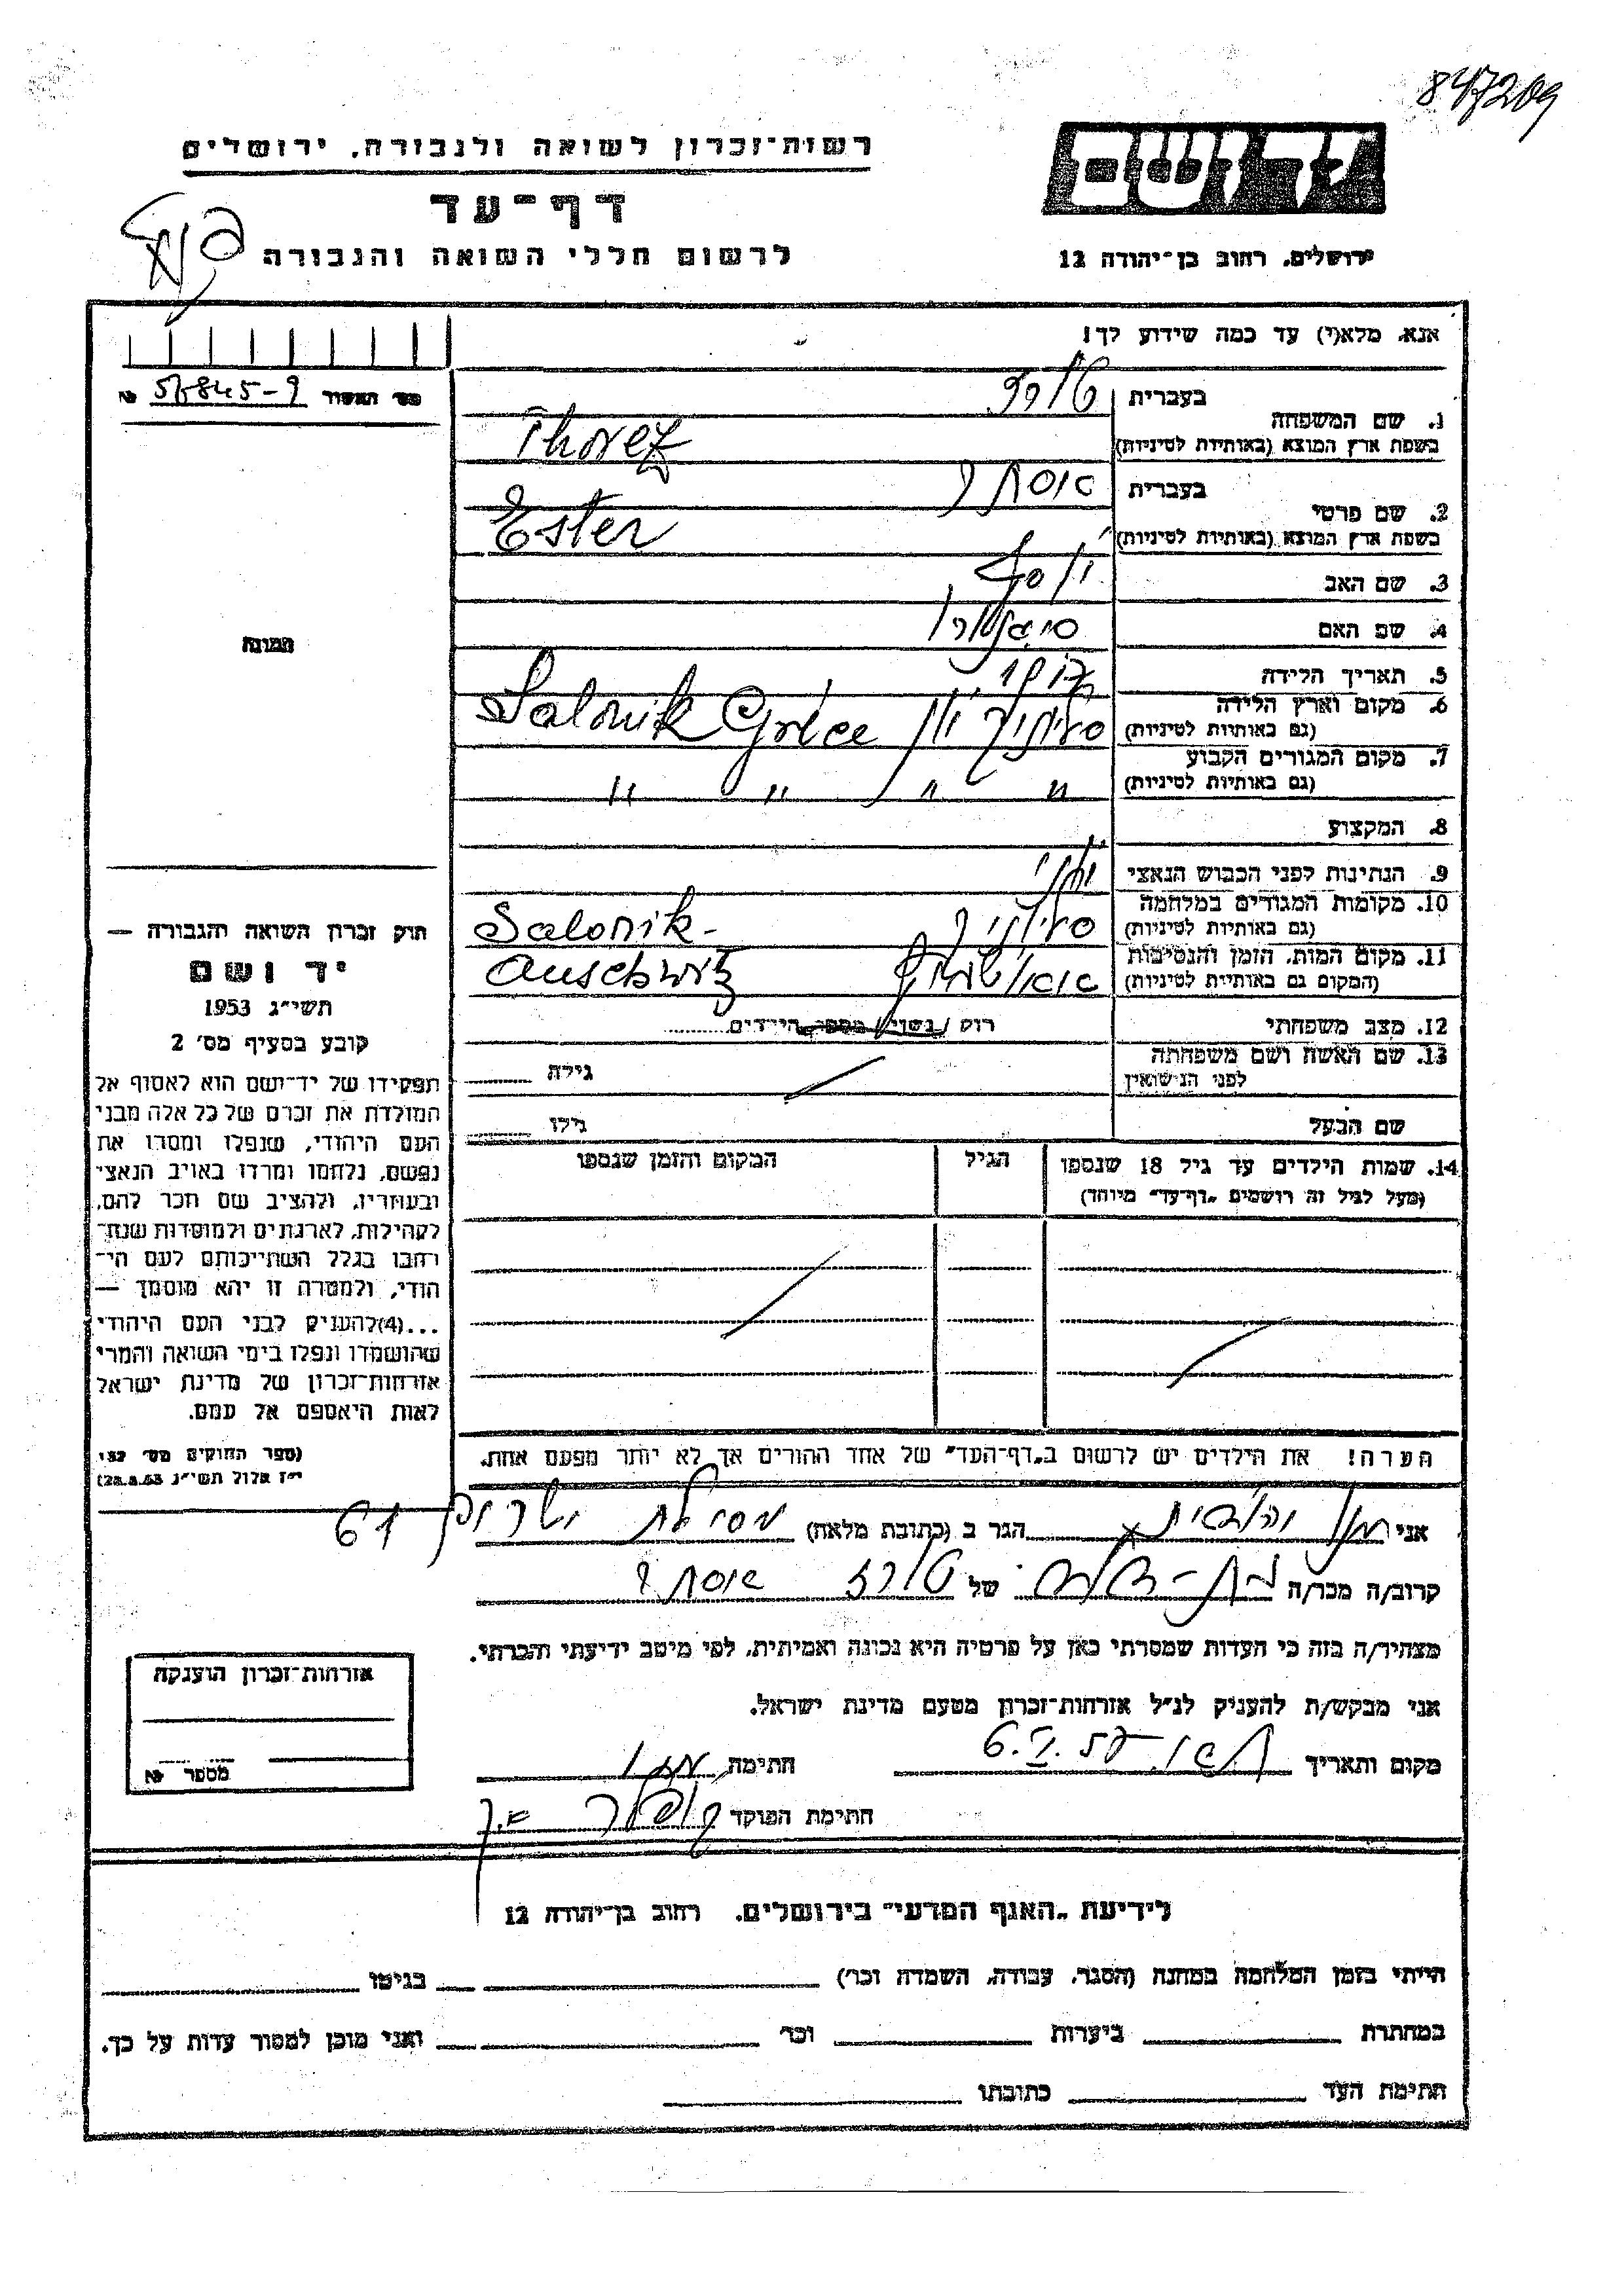 847209
רשות-זכרון לשואה ולגבורה, ירושלים
יד ושם
דף-עד
לרשום חללי השואה והגבורה
ירושלים, רחוב בן-יהודה 12
אנא, מלא(י) עד כמה שידוע לך!
מס' האשור № 55845-9
1. שם המשפחה
בעברית טורז
בשפת ארץ המוצא (באותיות לטיניות) Thorez
2. שם פרטי
בעברית אסתר
בשפת ארץ המוצא (באותיות לטיניות) Ester
3. שם האב יוסף
4. שם האם
5. תאריך הלידה
6. מקום וארץ הלידה
(גם באותיות לטיניות) סלוניקי יון Salonik Grèce
7. מקום המגורים הקבוע
(גם באותיות לטיניות) " " " "
8. המקצוע
9. הנתינות לפני הכבוש הנאצי יונית
10. מקומות המגורים במלחמה
(גם באותיות לטיניות) סלוניקי Salonik-
11. מקום המות, הזמן והנסיבות
(המקום גם באותיות לטיניות) Auschwitz
12. מצב משפחתי רוק / נשוי / מספר הילדים
13. שם האשה ושם משפחתה
לפני הנישואין גילה
שם הבעל גילו
14. שמות הילדים עד גיל 18 שנספו הגיל המקום והזמן שנספו
(מעל לגיל זה רושמים "דף-עד" מיוחד)
הערה! את הילדים יש לרשום ב"דף-העד" של אחד ההורים אך לא יותר מפעם אחת.
תמונה
חוק זכרון השואה והגבורה —
יד ושם
תשי"ג 1953
קובע בסעיף מס' 2
תפקידו של יד-ושם הוא לאסוף אל
המולדת את זכרם של כל אלה מבני
העם היהודי, שנפלו ומסרו את
נפשם, נלחמו ומרדו באויב הנאצי
ובעוזריו, ולהציב שם וזכר להם,
לקהילות, לארגונים ולמוסדות שנח-
רבו בגלל השתייכותם לעם הי-
הודי, ולמטרה זו יהא מוסמך —
...(4)להעניק לבני העם היהודי
שהושמדו ונפלו בימי השואה והמרי
אזרחות-זכרון של מדינת ישראל
לאות היאספם אל עמם.
(ספר החוקים מס' 132
י"ז אלול תשי"ג 28.8.53)
אני הגר ב (כתובת מלאה) 61
קרוב/ה מכר/ה של טורז אסתר
מצהיר/ה בזה כי העדות שמסרתי כאן על פרטיה היא נכונה ואמיתית, לפי מיטב ידיעתי והכרתי.
אני מבקש/ת להעניק לנ"ל אזרחות-זכרון מטעם מדינת ישראל.
מקום ותאריך 6.V.57 חתימה
חתימת הפוקד
אזרחות-זכרון הוענקה
מספר №
לידיעת "האגף המדעי" בירושלים, רחוב בן-יהודה 12
הייתי בזמן המלחמה במחנה (הסגר, עבודה, השמדה וכו') בגיטו
במחתרת ביערות וכו' ואני מוכן למסור עדות על כך.
חתימת העד כתובתו